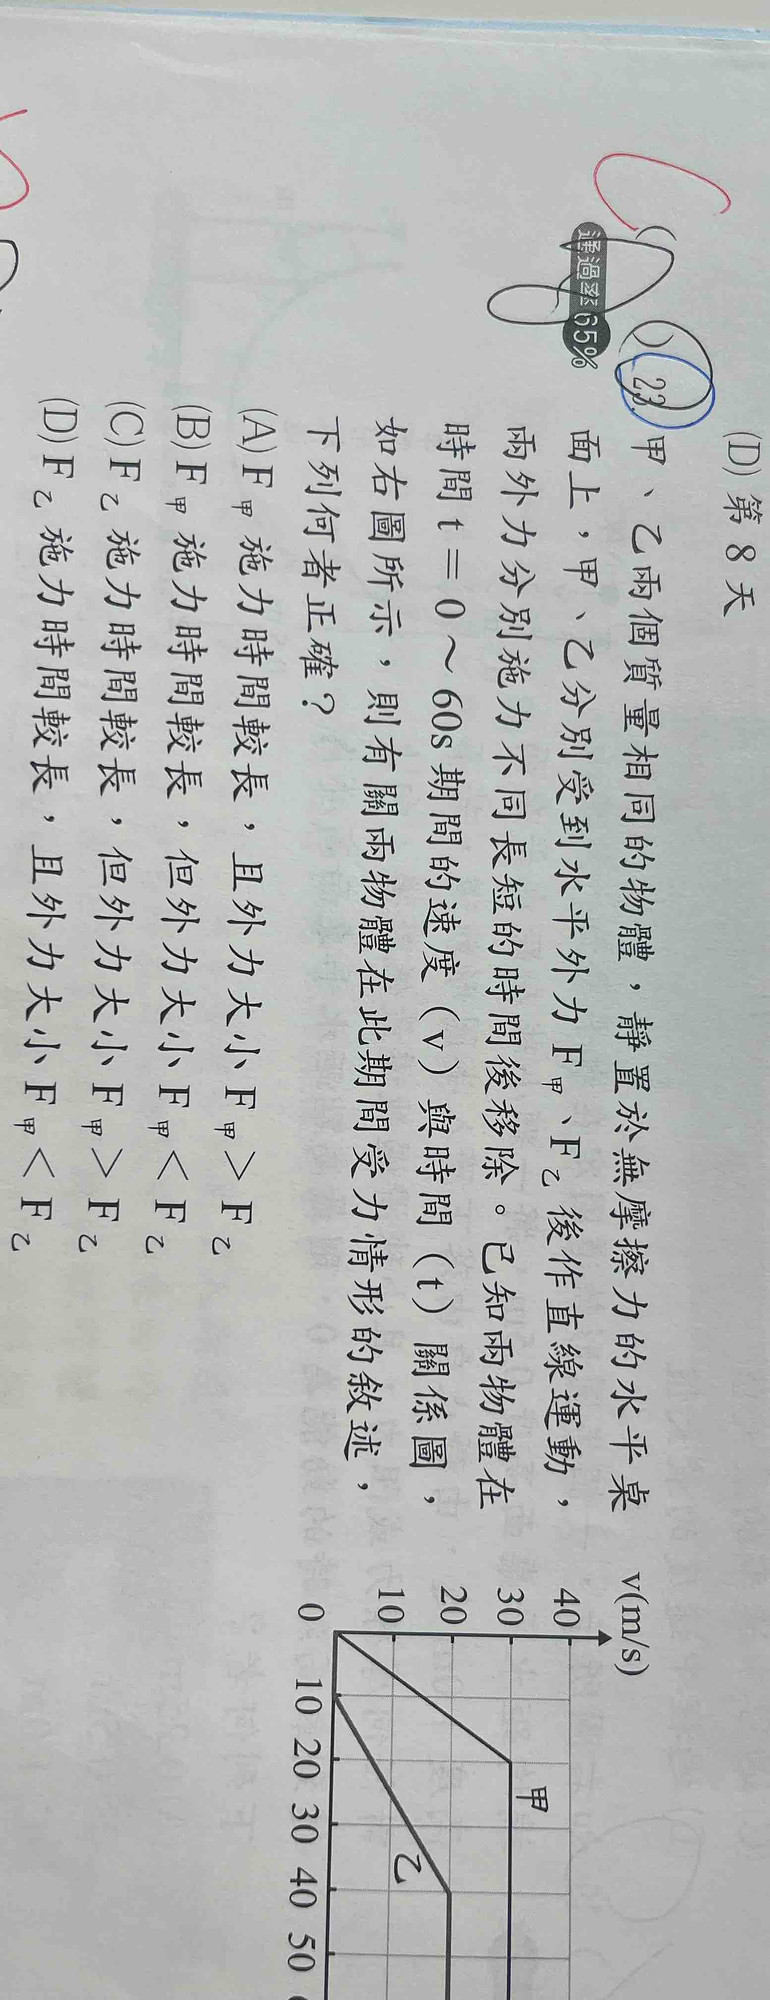 (D) 第 8 天
( ) 23. 甲、乙兩個質量相同的物體，靜置於無摩擦力的水平桌
通過率 65%
面上，甲、乙分別受到水平外力 F甲、F乙 後作直線運動，
兩外力分別施力不同長短的時間後移除。已知兩物體在
時間 t = 0 ～ 60s 期間的速度（v）與時間（t）關係圖，
如右圖所示，則有關兩物體在此期間受力情形的敘述，
下列何者正確？
(A) F甲 施力時間較長，且外力大小 F甲 > F乙
(B) F甲 施力時間較長，但外力大小 F甲 < F乙
(C) F乙 施力時間較長，但外力大小 F甲 > F乙
(D) F乙 施力時間較長，且外力大小 F甲 < F乙
v(m/s)
40
30
20
10
0
甲
乙
10 20 30 40 50